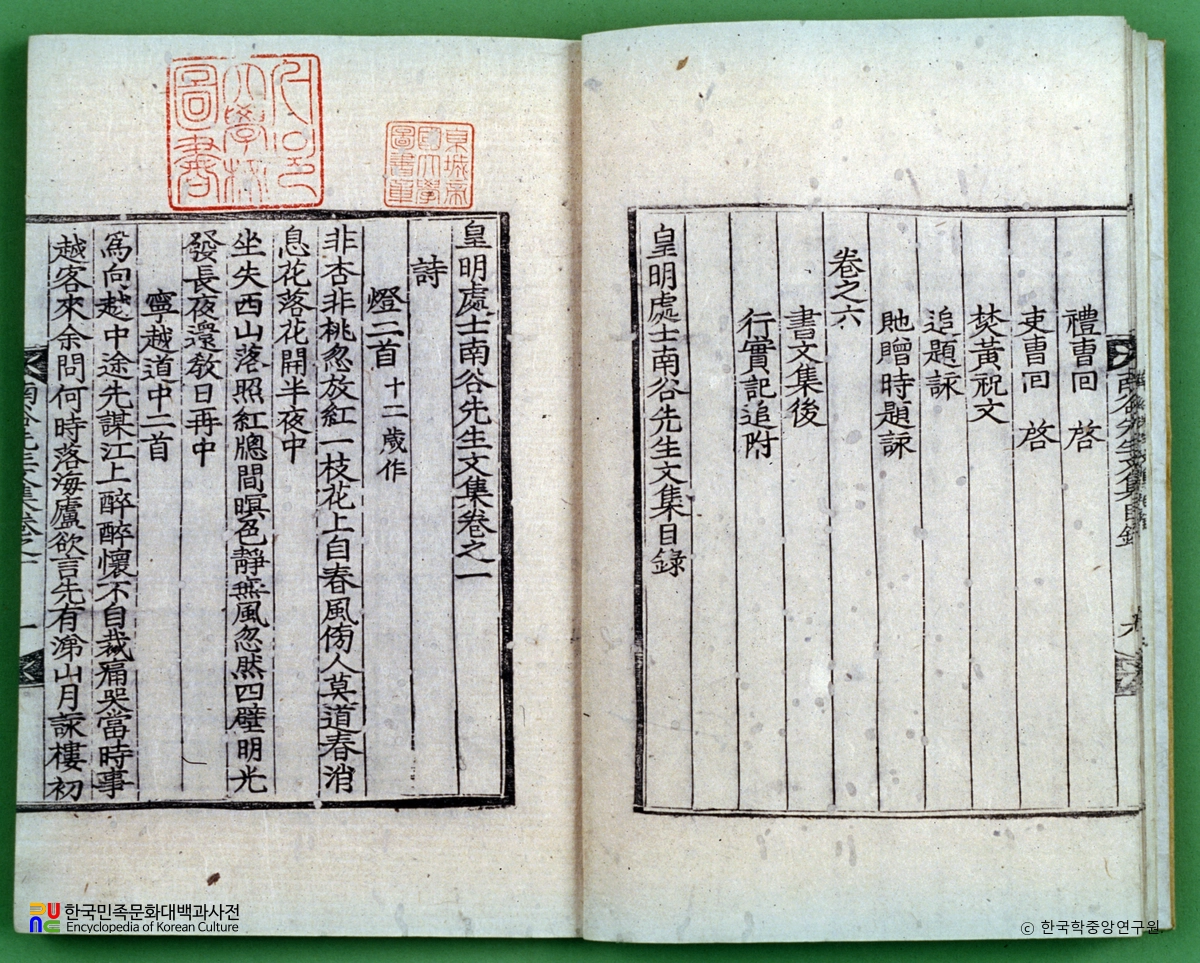 禮曹回 啓
吏曹回 啓
焚黃祝文
追題詠
貤贈時題詠
卷之六
書文集後
行實記追附
皇明處士南谷先生文集目錄
皇明處士南谷先生文集卷之一
詩
燈二首 十二歲作
非杏非桃忽放紅一枝花上自春風傍人莫道春消
息花落花開半夜中
坐失西山落照紅牕間暝色靜無風忽然四壁明光
發長夜還敎日再中
寧越道中二首
爲向越中途先謀江上醉醉懷不自裁痛哭當時事
越客來余問何時落海廬欲言先有涕山月詠樓初
東城帝
國大學
圖書章
大學校
圖書
한국민족문화대백과사전
Encyclopedia of Korean Culture
© 한국학중앙연구원